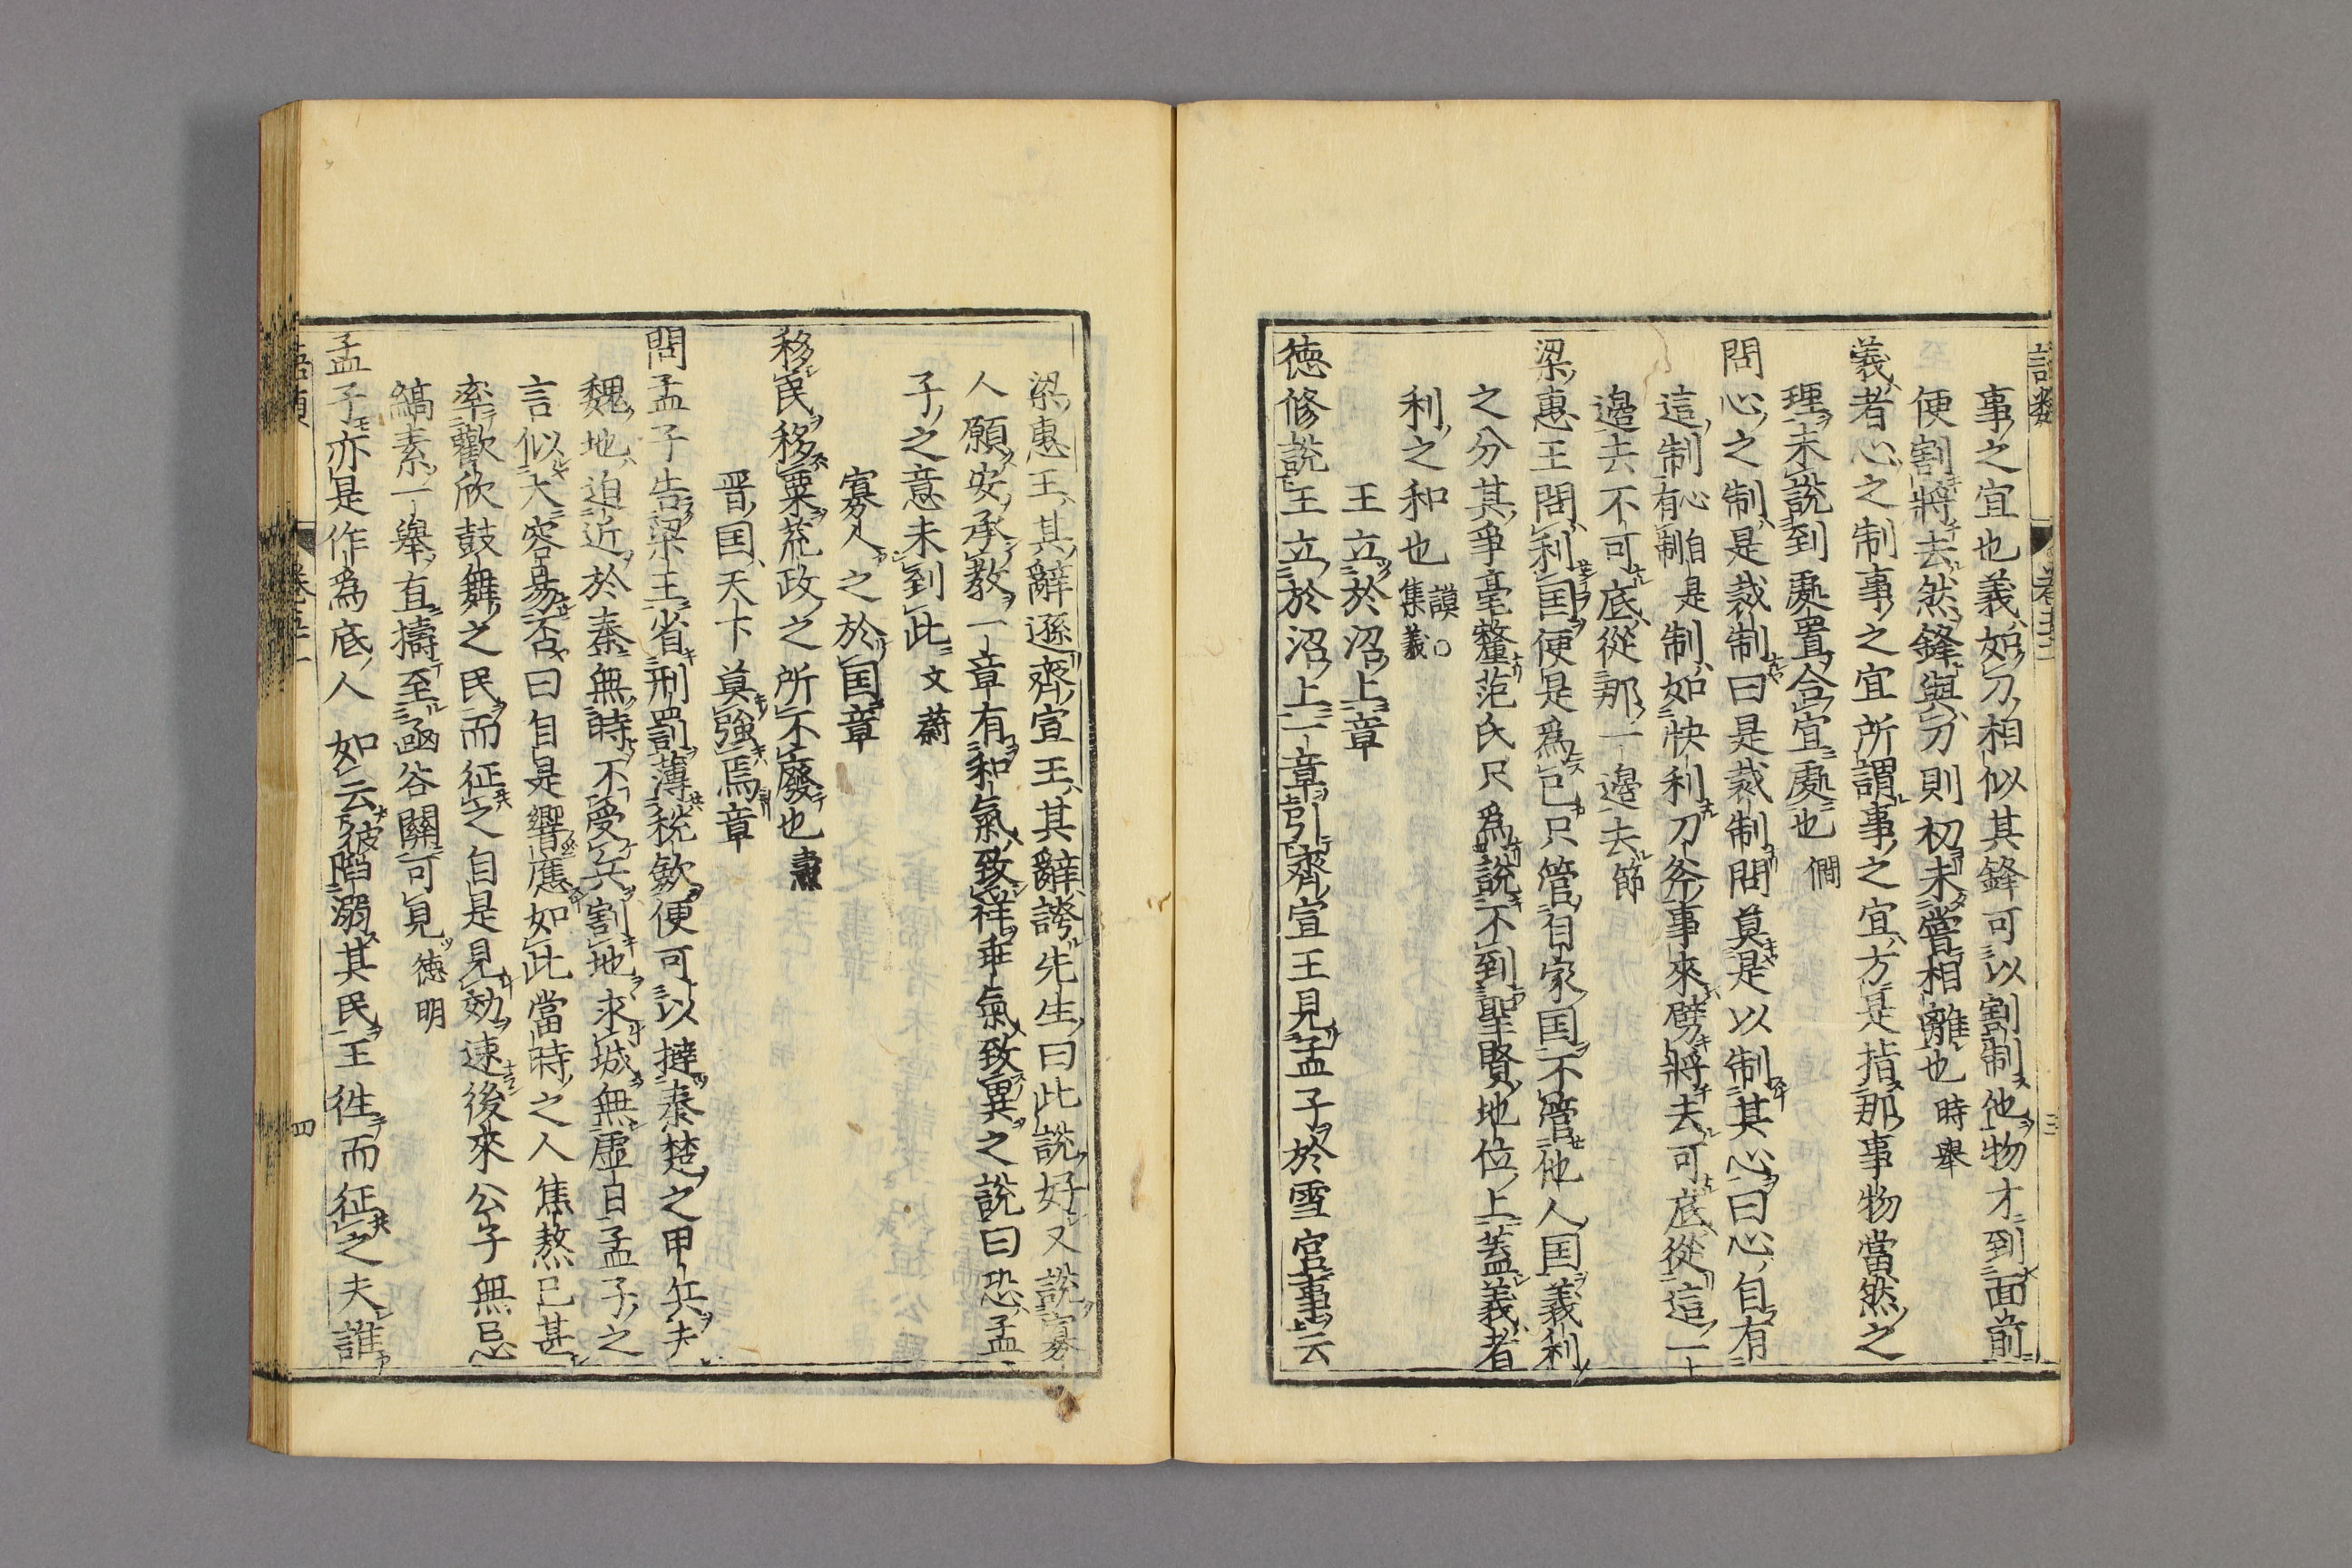 事之宜也義如刀相似其鋒可以割制他物才到面前
便割將去然鋒與刀則初未嘗相離也 時舉
義者心之制事之宜所謂事之宜方是指那事物當然之
理未說到處置合宜處也 僩
問心之制是裁制曰是裁制問莫是以制其心曰心自有
這制心自有制是制如快利刀斧事來劈將去可底從這一
邊去不可底從那一邊去 節
梁惠王問利国便是爲己只管自家国不管他人国義利
之分其爭毫釐范氏只爲說不到聖賢地位上蓋義者
利之和也 謨○集義
王立於沼上章
德修說王立於沼上一章引齊宣王見孟子於雪宮事云
梁惠王其辭遜齊宣王其辭誇先生曰此說好又說寡
人願安承教一章有和氣致祥乖氣致異之說曰恐孟
子之意未到此 文蔚
寡人之於国章
移民移粟荒政之所不廢也 燾
晋国天下莫強焉章
問孟子告梁王省刑罰薄稅斂便可以撻秦楚之甲兵夫
魏地迫近於秦無時不受兵割地求城無虛日孟子之
言似大容易否曰自是響應如此當時之人焦熬已甚
率歡欣鼓舞之民而征之自是見効速後來公子無忌
縞素一舉直擣至函谷關可見 德明
孟子亦是作爲底人如云彼陷溺其民王徃而征之夫誰
語類 卷五十一 四